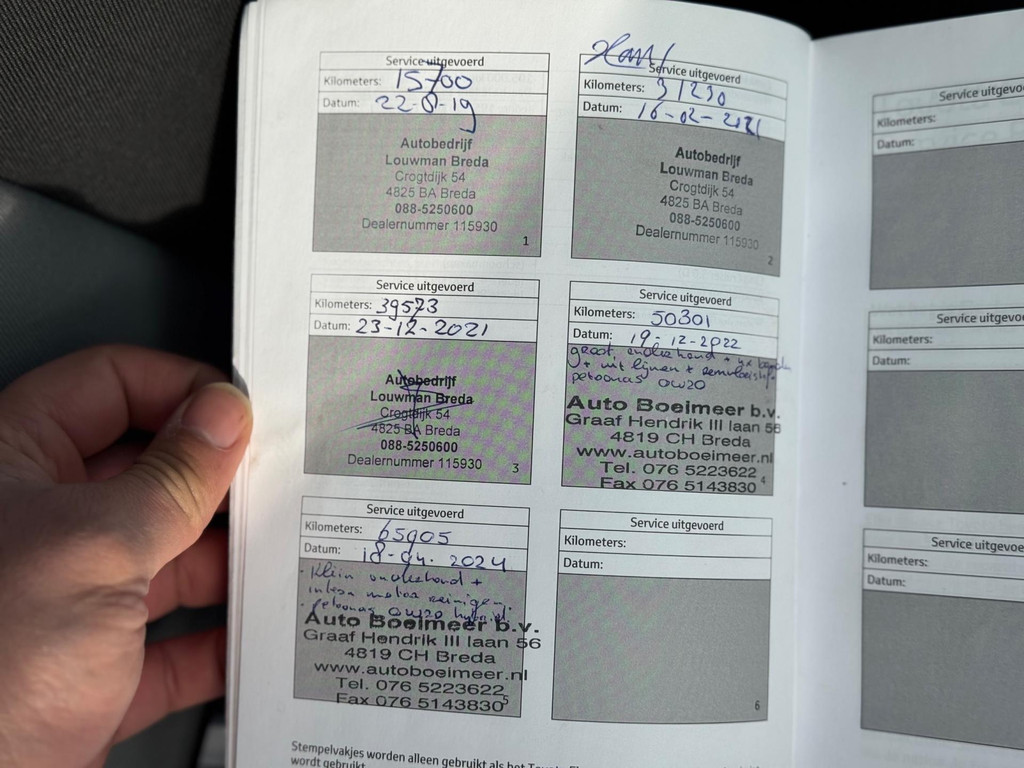 Service uitgevoerd
Kilometers: 15700
Datum: 22-8-19
Autobedrijf
Louwman Breda
Crogtdijk 54
4825 BA Breda
088-5250600
Dealernummer 115930
1
Service uitgevoerd
Kilometers: 31230
Datum: 16-02-2021
Autobedrijf
Louwman Breda
Crogtdijk 54
4825 BA Breda
088-5250600
Dealernummer 115930
2
Service uitgevoerd
Kilometers: 39573
Datum: 23-12-2021
Autobedrijf
Louwman Breda
Crogtdijk 54
4825 BA Breda
088-5250600
Dealernummer 115930
3
Service uitgevoerd
Kilometers: 50301
Datum: 19-12-2022
groot onderhoud + 4x
+ uitlijnen +
petronas 0W20
Auto Boeimeer b.v.
Graaf Hendrik III laan 56
4819 CH Breda
www.autoboeimeer.nl
Tel. 076 5223622
Fax 076 5143830
4
Service uitgevoerd
Kilometers: 65905
Datum: 18-04-2024
· Klein onderhoud +
intern motor reinigen.
· Petronas 0W20 hybrid.
Auto Boeimeer b.v.
Graaf Hendrik III laan 56
4819 CH Breda
www.autoboeimeer.nl
Tel. 076 5223622
Fax 076 5143830
5
Service uitgevoerd
Kilometers:
Datum:
6
Stempelvakjes worden alleen gebruikt als het
wordt gebruikt
Service uitgevo
Kilometers:
Datum:
Service uitgevo
Kilometers:
Datum:
Service uitgevoe
Kilometers:
Datum: